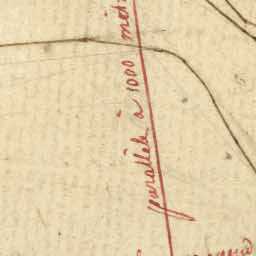 parallèle à 1000 mèt